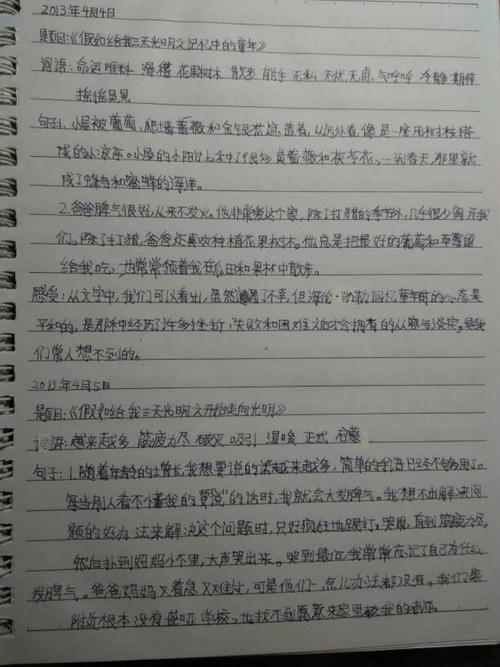 2013年4月4日
题目:《假如给我三天光明之记忆中的童年》
词语:命运难料 滑稽 花果树林 散步 能手 无私 无忧无虑 气呼呼 冷静 期待
摇摇晃晃
句子1.小屋被葡萄,爬墙蔷薇和金银花遮盖着,从远处看,像是一座用树枝搭
成的小凉亭。小屋的小阳台上种了很多黄蔷薇和茯苓花,一到春天,那里就
成了蜂鸟和蜜蜂的海洋。
2.爸爸脾气很好,从来不发火。他非常爱这个家,除了打猎的季节外,几乎很少离开我
们。除了打猎,爸爸还喜欢种植花果树木。他总是把最好的葡萄和草莓留
给我吃,也常常领着我在瓜田和果林中散步。
感受:从文字中,我们可以看出,虽然遭遇了不幸,但海伦·凯勒回忆童年时的心态是
平和的,是那种经历了许多挫折、失败和困难之后才会拥有的从容与淡定。是我
们常人想不到的。
2013年4月5日
题目:《假如给我三天光明之开始走向光明》
词语:越来越多 筋疲力尽 破灭 吸引 温暖 正式
句子:1.随着年龄的增长,我想要说的话越来越多,简单的手语已经不够用了。
每当别人看不懂我的要"说"的话时,我就会大发脾气。我想不出解决问
题的好办法来解决这个问题时,只好疯狂地踢打。哭闹,直到筋疲力尽,
然后扑到妈妈怀里,大声哭出来。哭到最后我常常忘记了自己为什么
发脾气。爸爸妈妈又着急又,可是他们一点儿办法都没有。我们家
附近根本没有聋哑学校。也找不到愿意来家里教我的老师。